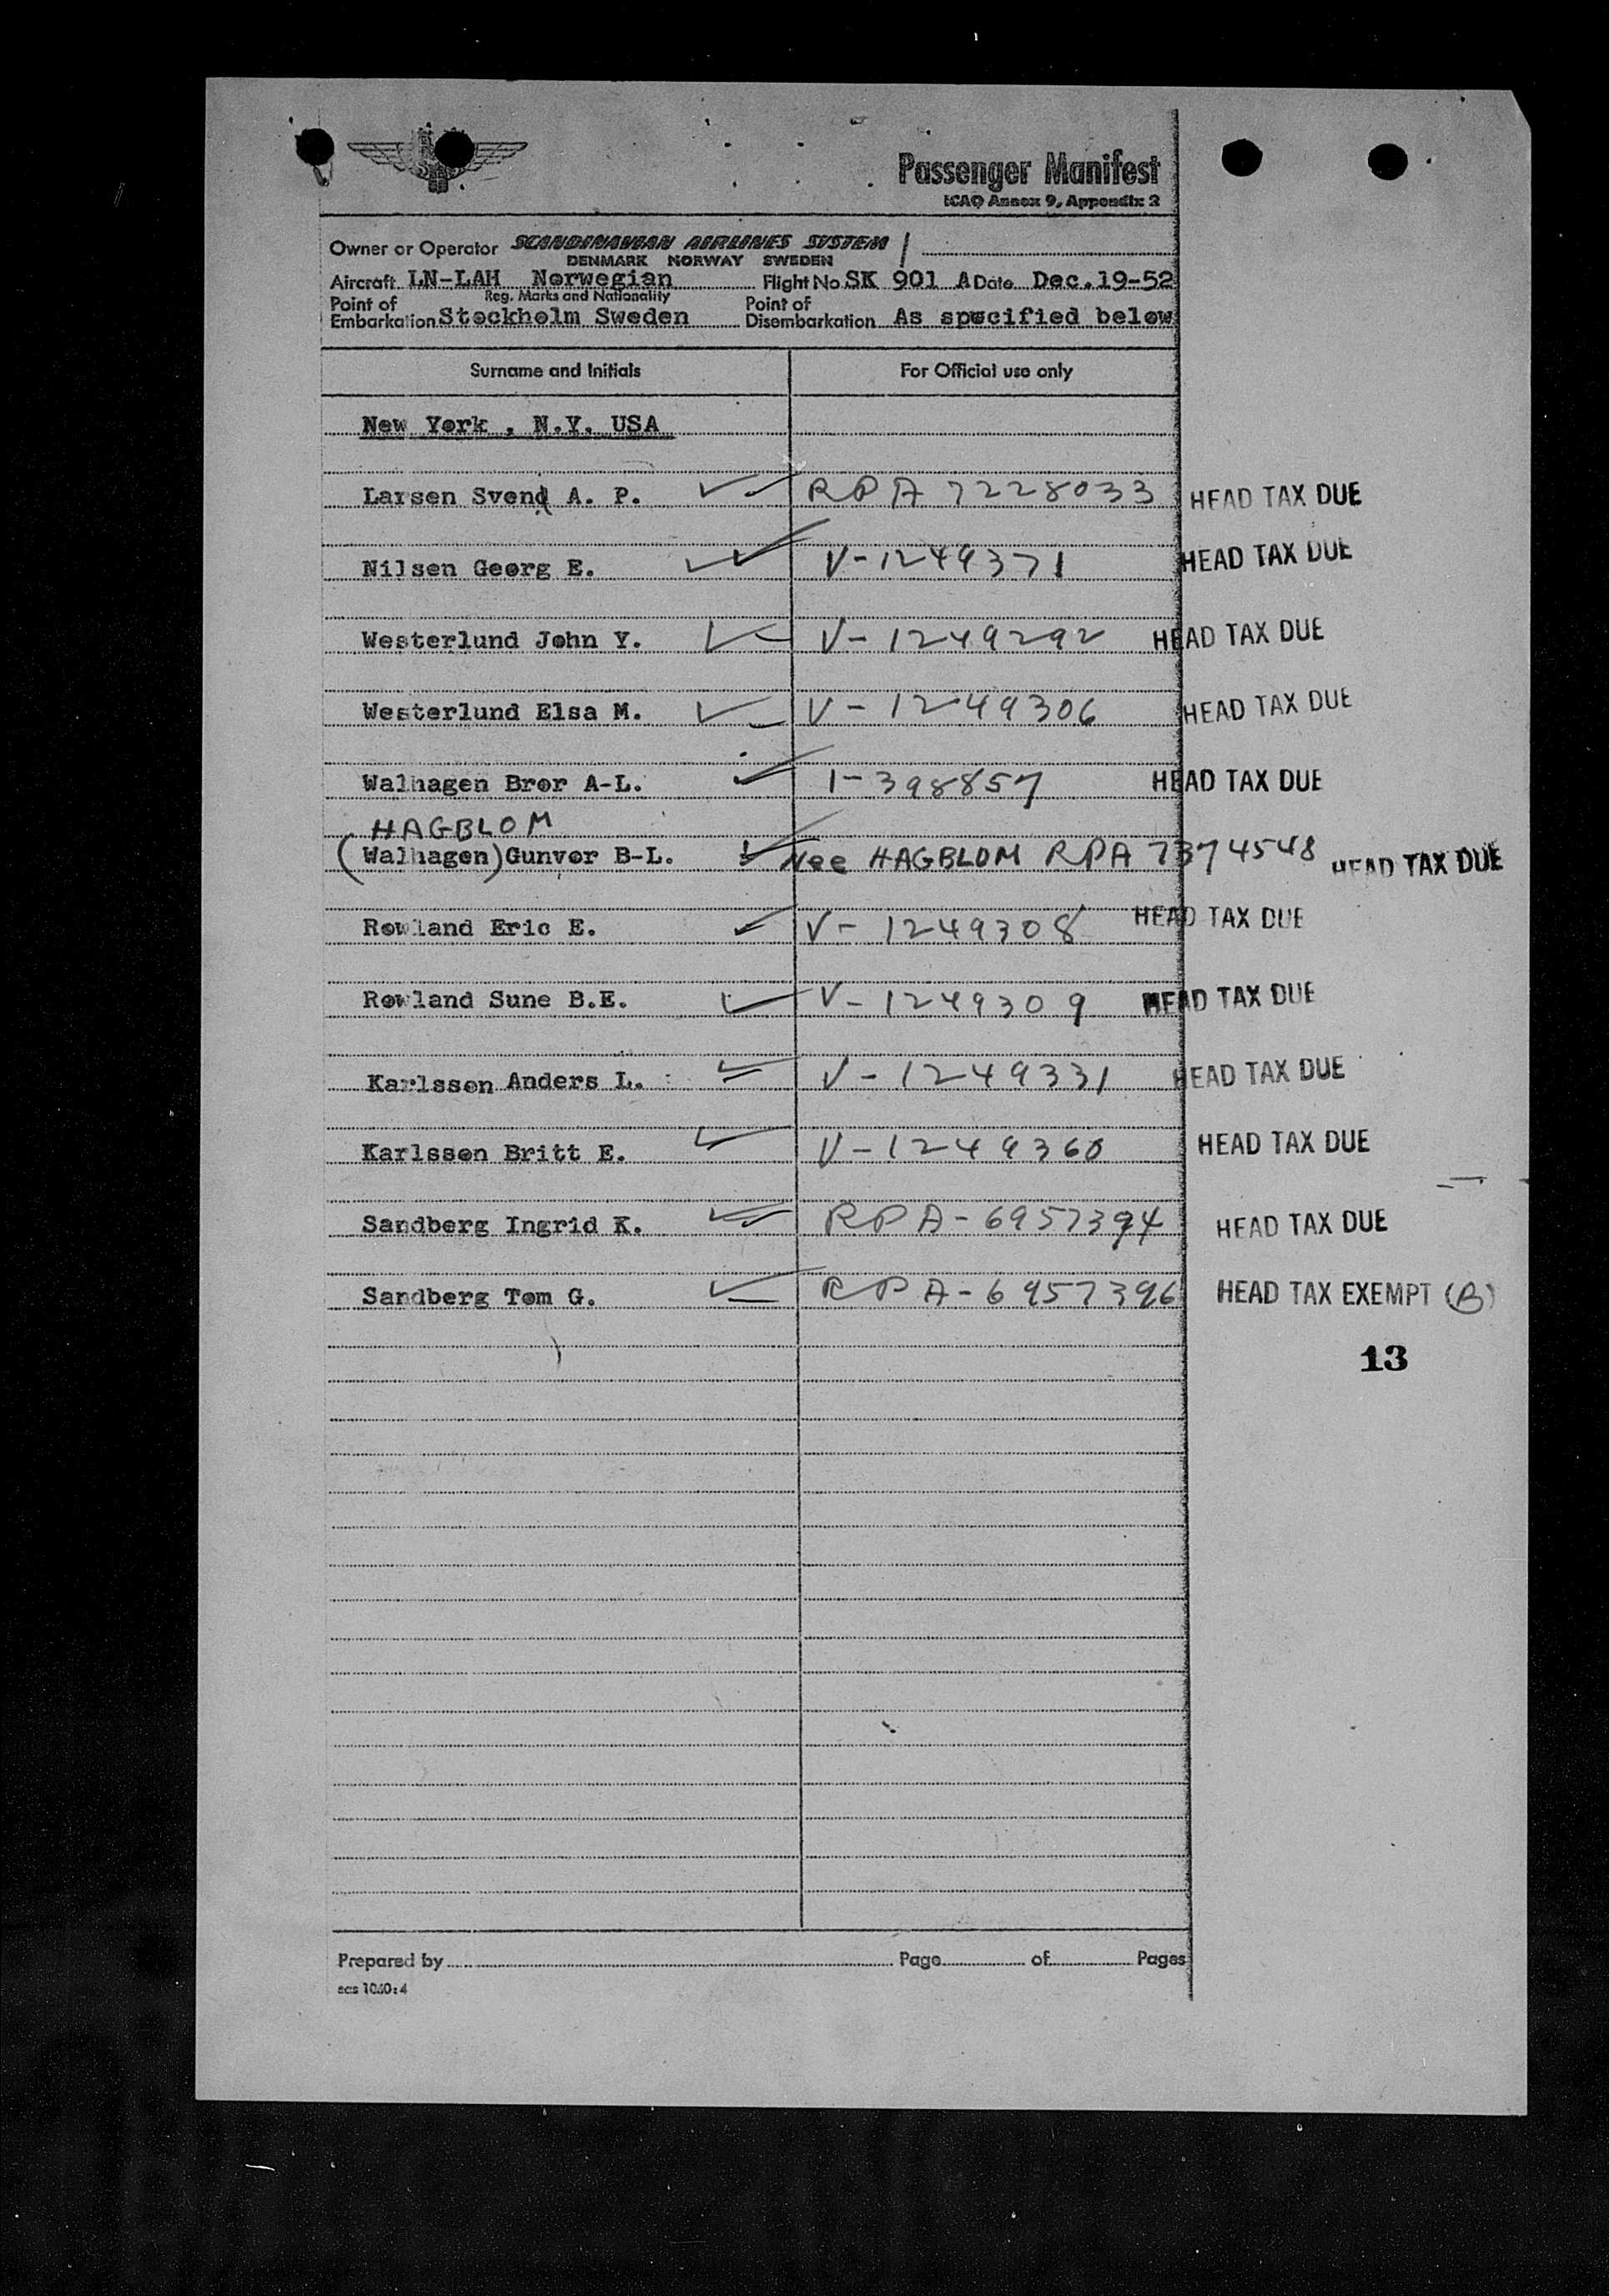 Passenger Manifest
ICAO Annex 9, Appendix 2
Owner or Operator SCANDINAVIAN AIRLINES SYSTEM
DENMARK NORWAY SWEDEN
Aircraft LN-LAH Norwegian Flight No SK 901 A Date Dec.19-52
Reg. Marks and Nationality
Point of Embarkation Stockholm Sweden Point of Disembarkation As specified below
Surname and Initials For Official use only
New York , N.Y. USA
Larsen Svend A. P. RPA 7228033 HEAD TAX DUE
Nilsen Georg E. V-1249371 HEAD TAX DUE
Westerlund John Y. V-1249292 HEAD TAX DUE
Westerlund Elsa M. V-1249306 HEAD TAX DUE
Walhagen Bror A-L. 1-398857 HEAD TAX DUE
HAGBLOM
(Walhagen) Gunvor B-L. Nee HAGBLOM RPA 7374548 HEAD TAX DUE
Rowland Eric E. V-1249308 HEAD TAX DUE
Rowland Sune B.E. V-1249309 HEAD TAX DUE
Karlsson Anders L. V-1249331 HEAD TAX DUE
Karlsson Britt E. V-1249360 HEAD TAX DUE
Sandberg Ingrid K. RPA-6957394 HEAD TAX DUE
Sandberg Tom G. RPA-6957396 HEAD TAX EXEMPT (B)
13
Prepared by Page of Pages
scs 1040:4